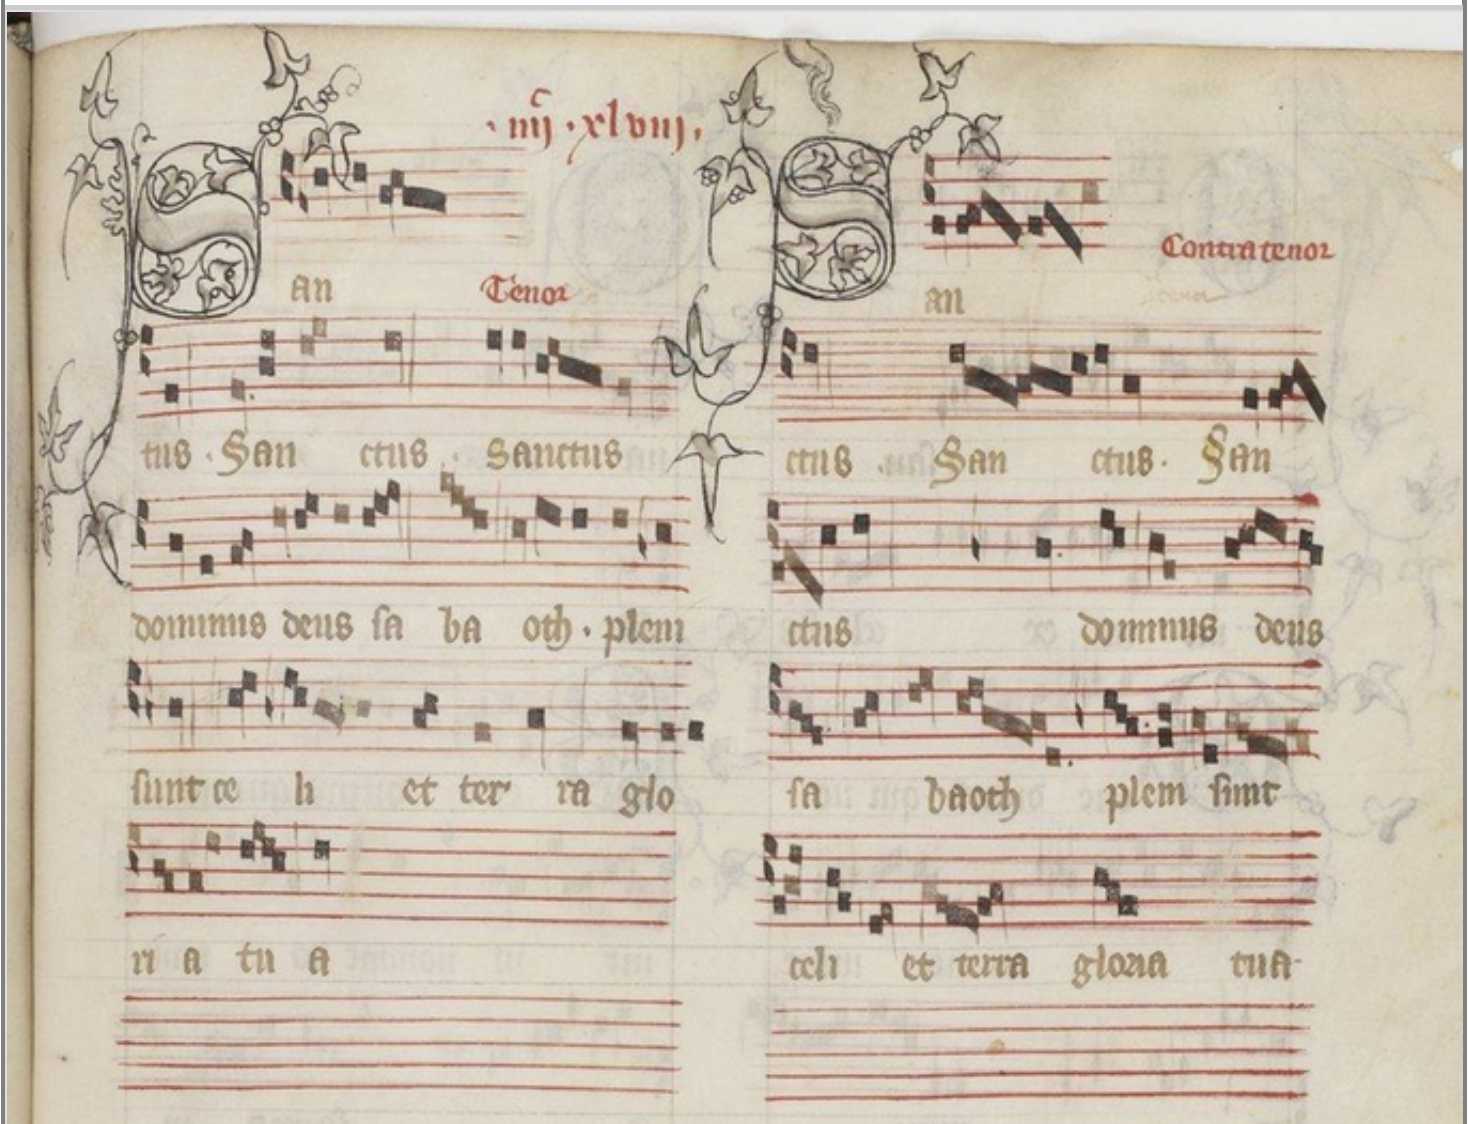 · iiijc · xlviij ·
San
Tenor
tus · San ctus · Sanctus
dominus deus sa ba oth · pleni
sunt ce li et ter ra glo
ri a tu a
San
Contratenor
ctus San ctus · San
ctus dominus deus
sa baoth pleni sunt
celi et terra gloria tua